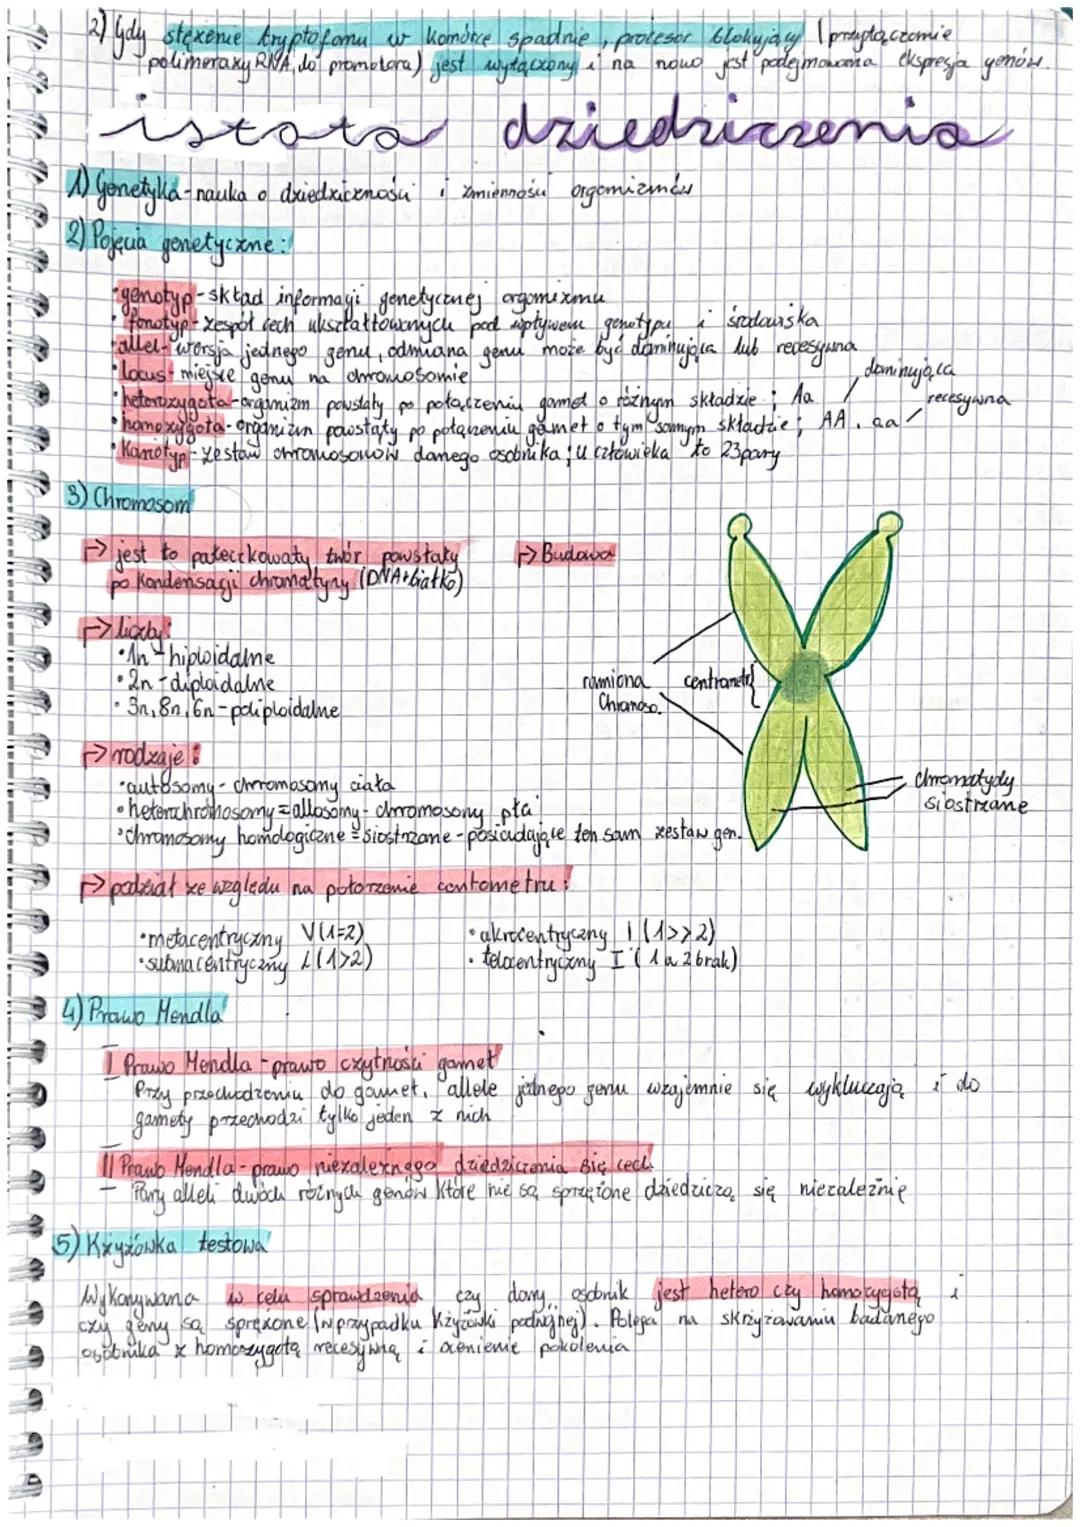 2) Gdy stężenie tryptofanu w komórce spadnie, proces blokujący (przyłączanie
polimerazy RNA, do promotora) jest wyłączony i na nowo jest podejmowana ekspresja genów.
istota dziedziczenia
1) Genetyka - nauka o dziedziczności i zmienności organizmów
2) Pojęcia genetyczne:
• genotyp - skład informacji genetycznej organizmu
• fenotyp - zespół cech ukształtowanych pod wpływem genotypu i środowiska
• allel - wersja jednego genu, odmiana genu może być dominująca lub recesywna
• locus - miejsce genu na chromosomie
dominująca
• heterozygota - organizm powstały po połączeniu gamet o różnym składzie; Aa
recesywna
• homozygota - organizm powstały po połączeniu gamet o tym samym składzie; AA, aa
• Kariotyp - zestaw chromosomów danego osobnika; u człowieka to 23pary
3) Chromosom
→ jest to pałeczkowaty twór powstały
po kondensacji chromatyny (DNA+białko)
→ Budowa
→ liczby:
• 1n - hiploidalne
• 2n - diploidalne
• 3n, 8n, 6n - poliploidalne
ramiona
Chromoso.
centrometr
→ rodzaje:
• autosomy - chromosomy ciała
• heterochromosomy = allosomy - chromosomy płci
• chromosomy homologiczne = siostrzane - posiadające ten sam zestaw gen.
chromatydy
siostrzane
→ podział ze względu na położenie centometru:
• metacentryczny V (1=2)
• submacentryczny L (1>2)
• akrocentryczny | (1>>2)
• telocentryczny I (1 a 2 brak)
4) Prawo Mendla
I Prawo Mendla - prawo czytności gamet
Przy przechodzeniu do gamet, allele jednego genu wzajemnie się wykluczają i do
gamety przechodzi tylko jeden z nich
II Prawo Mendla - prawo niezależnego dziedziczenia się cech
- Pary alleli dwóch różnych genów które nie są sprzężone dziedziczą się niezależnie
5) Krzyżówka testowa
Wykonywana w celu sprawdzenia czy dany osobnik jest hetero czy homozygotą i
czy geny są sprężone (w przypadku krzyżówki podwójnej). Polega na skrzyżowaniu badanego
osobnika z homozygotą recesywną i ocenienie pokolenia